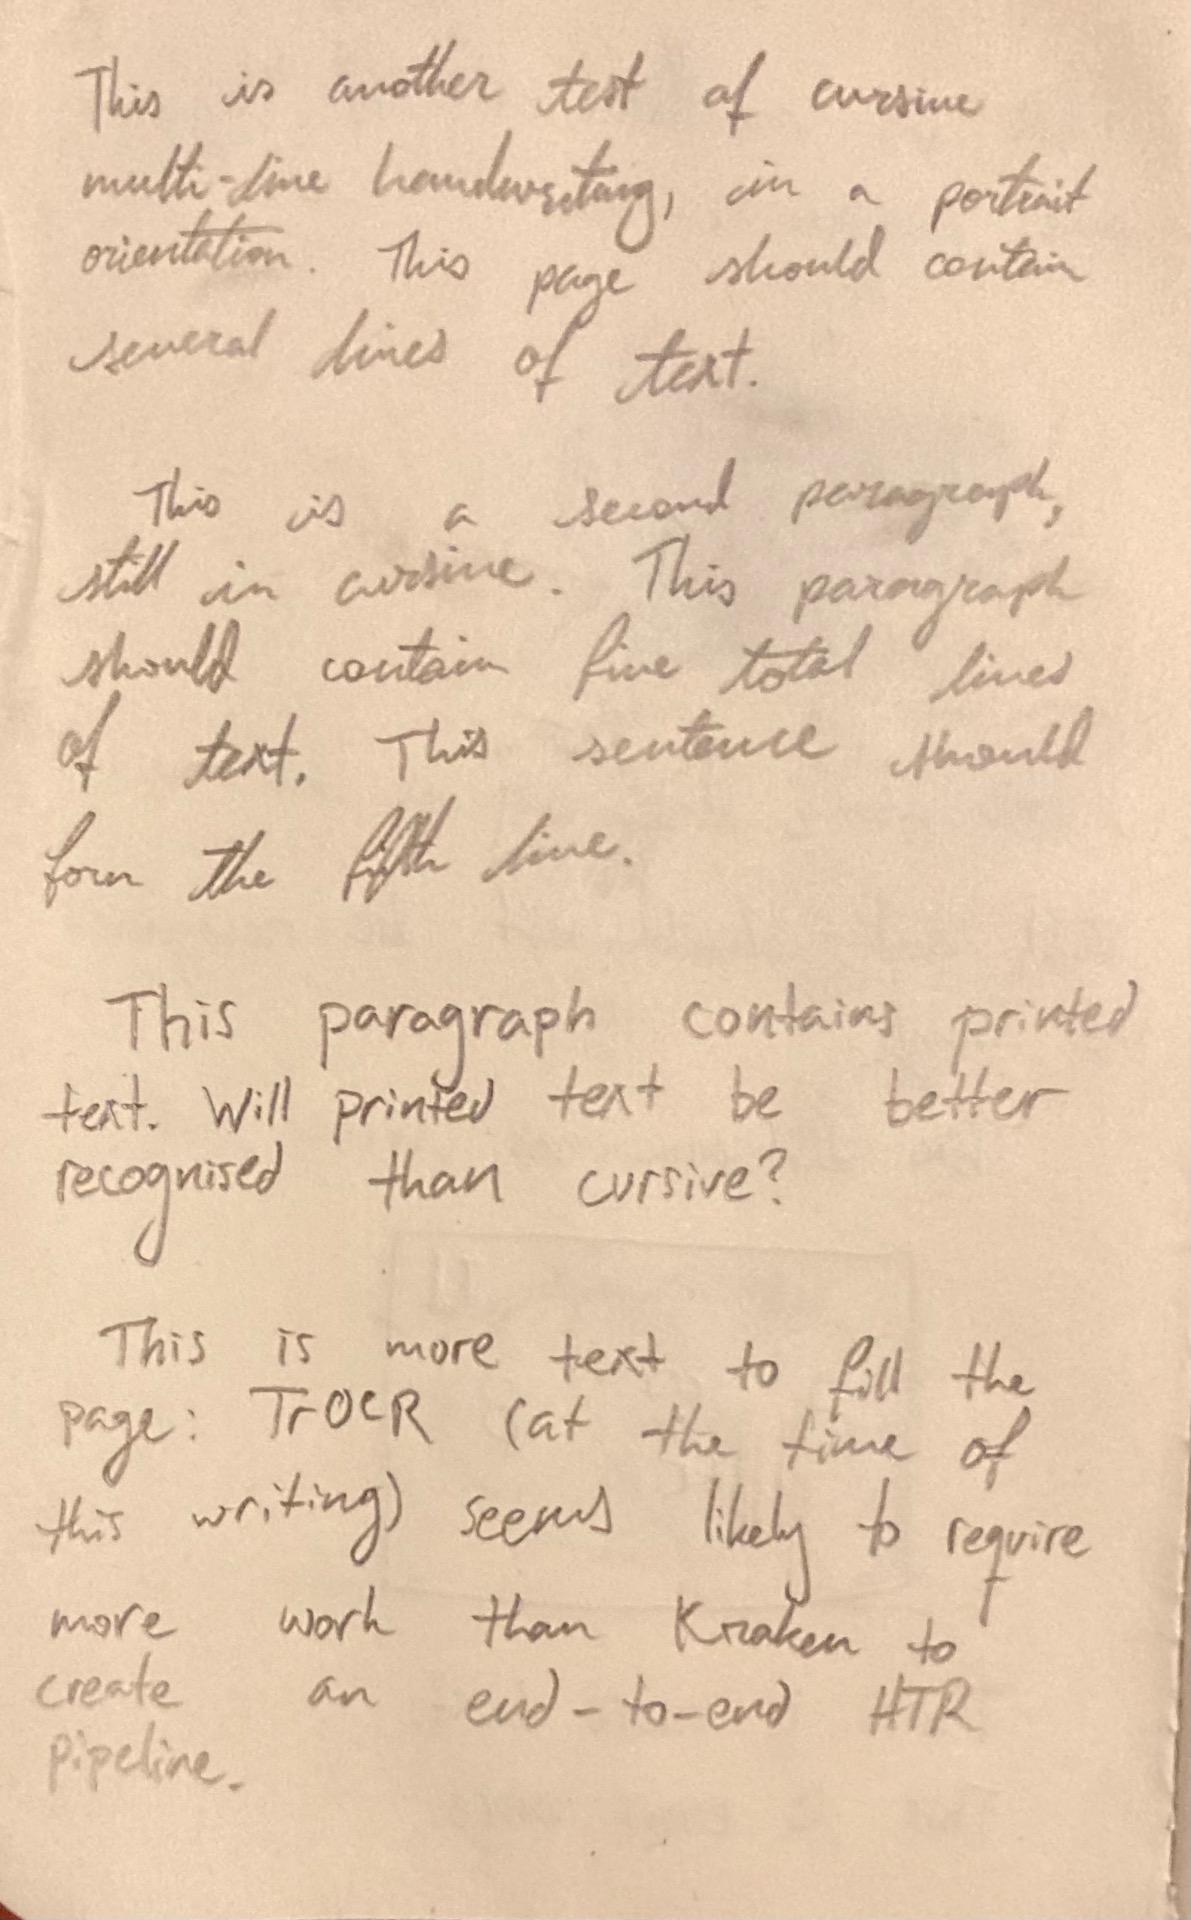 This is another test of cursive
multi-line handwriting, in a portrait
orientation. This page should contain
several lines of text.
This is a second paragraph,
still in cursive. This paragraph
should contain five total lines
of text. This sentence should
form the fifth line.
This paragraph contains printed
text. Will printed text be better
recognised than cursive?
This is more text to fill the
page: TrOCR (at the time of
this writing) seems likely to require
more work than Kraken to
create an end-to-end HTR
pipeline.